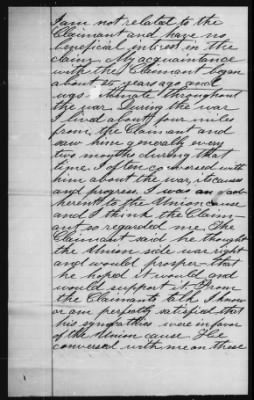 I am not related to the
Claimant and have no
beneficial interest in the
claim. My acquaintance
with the Claimant began
about years ago and
was intimate throughout
the war. During the war
I lived about four miles
from the Claimant and
saw him generally every
two months during that
time. I often conversed with
him about the war, its cause
and progress. I was an ad-
herent to the Union cause
and I think the Claim-
ant so regarded me. The
Claimant said he thought
the Union side was right
and would prosper - that
he hoped it would and
would support it. From
the Claimants talk I know
or am perfectly satisfied that
his sympathies were in favor
of the Union cause. He
conversed with me on these